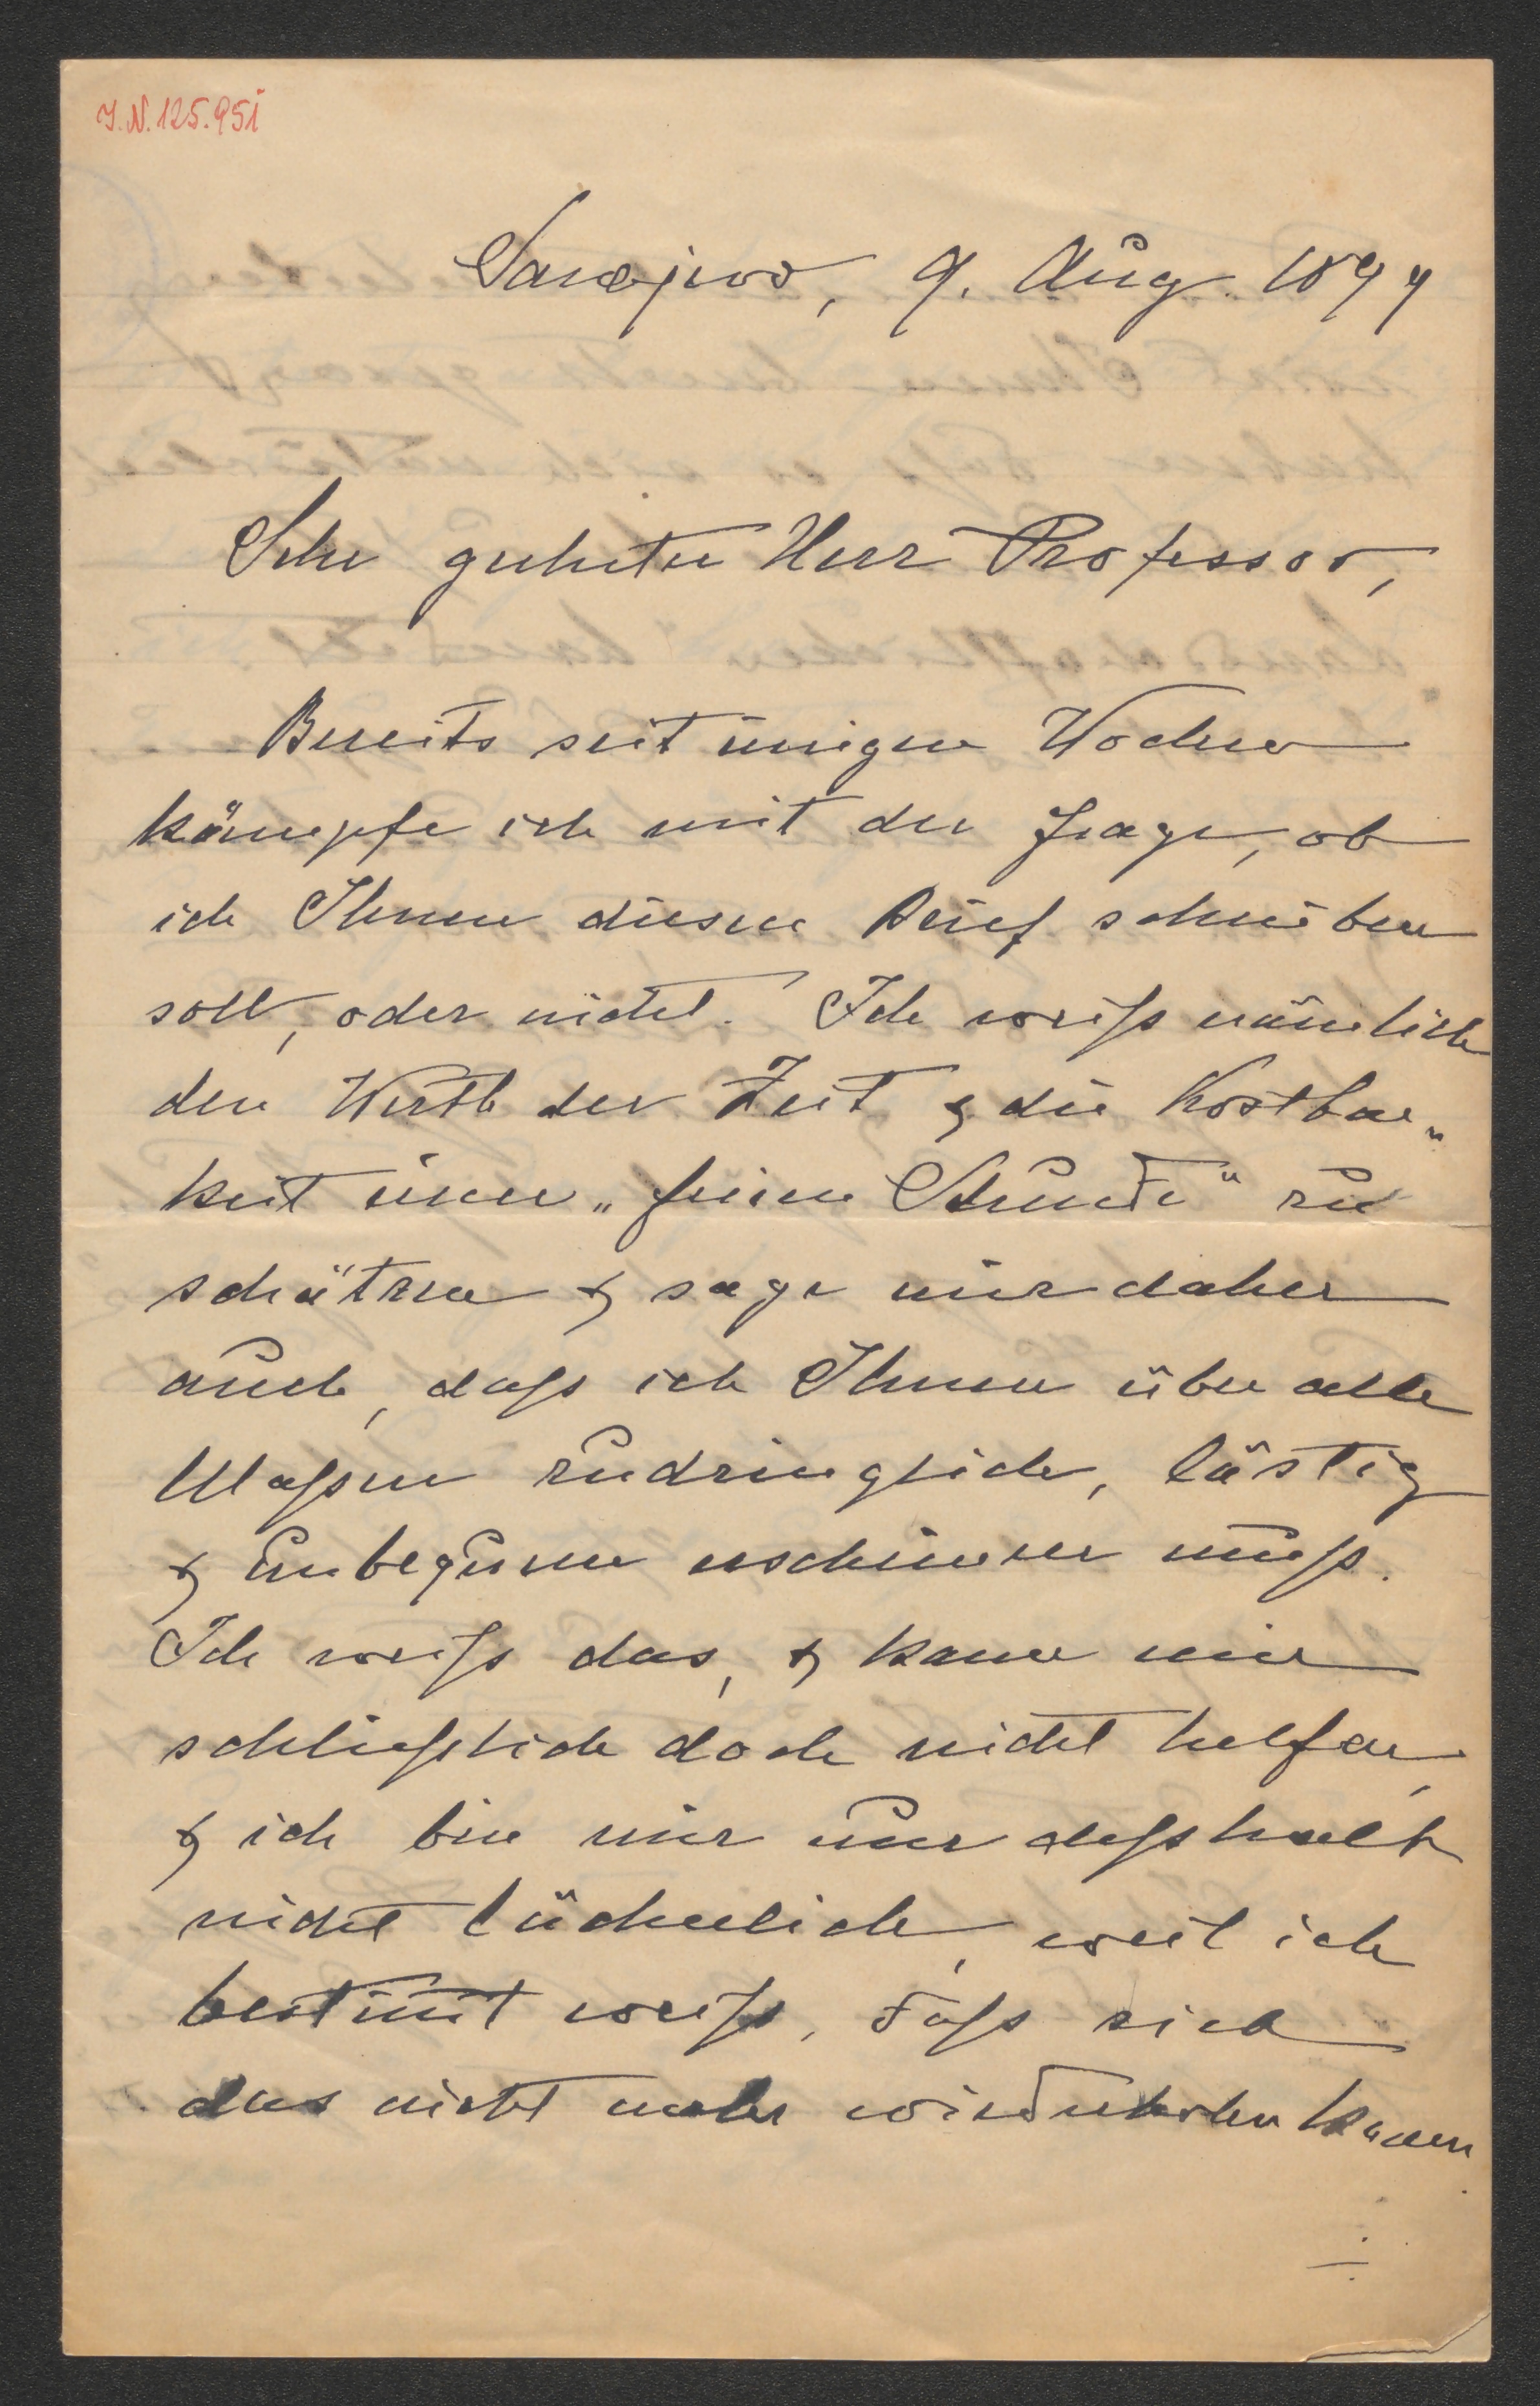 J.N. 125.951
Sarajevo, 9. Aug. 1899
Sehr geehrter Herr Professor,
Bereits seit einigen Wochen
kämpfe ich mit der Frage, ob
ich Ihnen diesen Brief schreiben
soll, oder nicht. Ich weiß nämlich
den Werth der Zeit & die Kostbar„
keit einer „freien Stunde“ zu
schätzen & sage mir daher
auch, daß ich Ihnen über alle
Maßen zudringlich, lästig
& unbequem erscheinen muß.
Ich weiß das, & kann mir
schließlich doch nicht helfen,
& ich bin mir nur deßhalb
nicht lächerlich, weil ich
bestim̅t weiß, daß sich
das nicht mehr wiederholen kann.